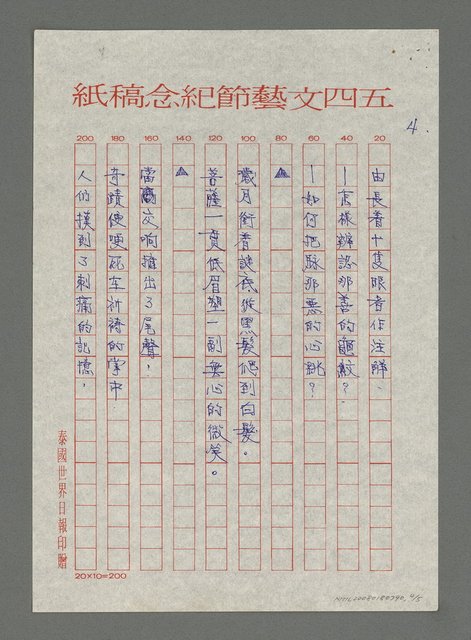 五四文藝節紀念稿紙
4.
20 40 60 80 100 120 140 160 180 200
由長着十隻眼者作注解、
—怎樣辨認那善的龜紋？
—如何把脉那惡的心跳？
▲
歲月銜着謎底從黑髮爬到白髮。
菩薩一貫低眉塑一副無心的微笑。
▲
當交响擠出了尾聲，
奇蹟便哽死在祈禱的掌中
人们摸到了刺痛的記憶，
泰國世界日報印贈
20×10=200
NMTL20080180790, 4/5